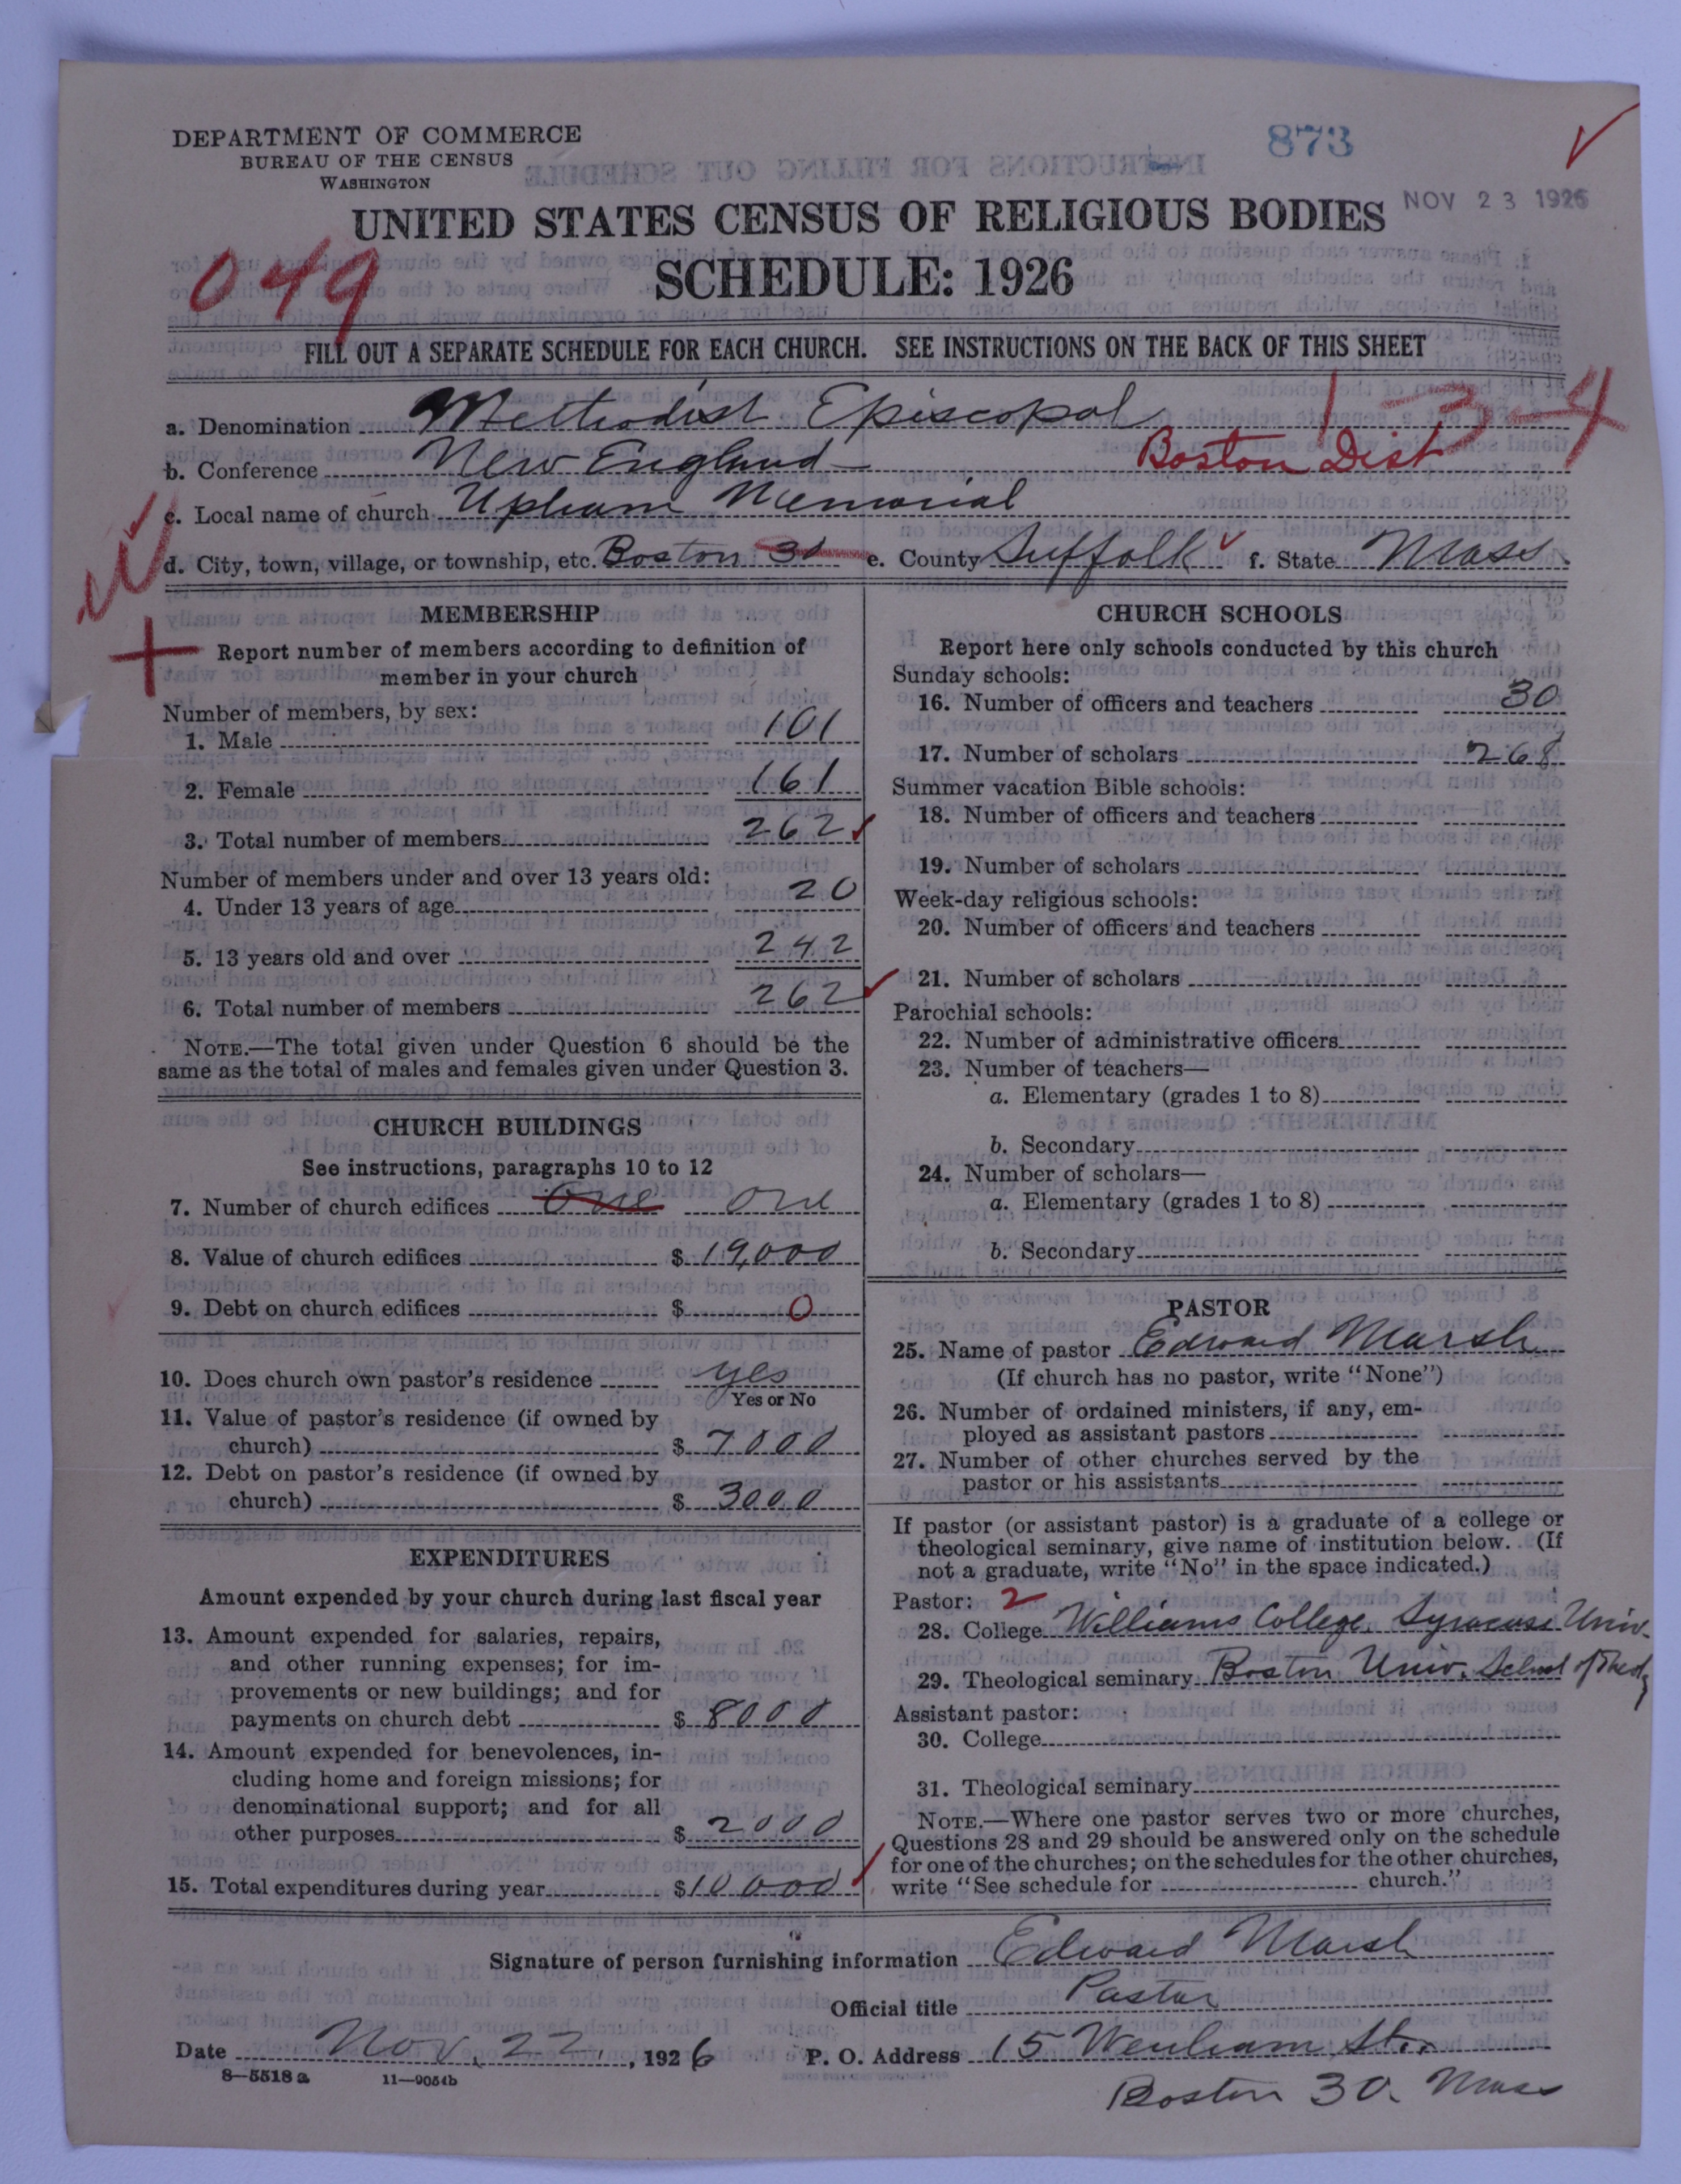 DEPARTMENT OF COMMERCE
BUREAU OF THE CENSUS
WASHINGTON
873
NOV 23 1926
UNITED STATES CENSUS OF RELIGIOUS BODIES
SCHEDULE: 1926
049
FILL OUT A SEPARATE SCHEDULE FOR EACH CHURCH. SEE INSTRUCTIONS ON THE BACK OF THIS SHEET
1-3-4
a. Denomination Methodist Episcopal
b. Conference New England Boston Dist
c. Local name of church Upham Memorial
d. City, town, village, or township, etc. Boston 30 e. County Suffolk f. State Mass
MEMBERSHIP
Report number of members according to definition of
member in your church
Number of members, by sex:
1. Male 101
2. Female 161
3. Total number of members 262
Number of members under and over 13 years old:
4. Under 13 years of age 20
5. 13 years old and over 242
6. Total number of members 262
NOTE.—The total given under Question 6 should be the
same as the total of males and females given under Question 3.
CHURCH BUILDINGS
See instructions, paragraphs 10 to 12
7. Number of church edifices one one
8. Value of church edifices $ 19,000
9. Debt on church edifices $ 0
10. Does church own pastor's residence yes
Yes or No
11. Value of pastor's residence (if owned by
church) $ 7000
12. Debt on pastor's residence (if owned by
church) $ 3000
EXPENDITURES
Amount expended by your church during last fiscal year
13. Amount expended for salaries, repairs,
and other running expenses; for im-
provements or new buildings; and for
payments on church debt $ 8000
14. Amount expended for benevolences, in-
cluding home and foreign missions; for
denominational support; and for all
other purposes $ 2000
15. Total expenditures during year $ 10000
CHURCH SCHOOLS
Report here only schools conducted by this church
Sunday schools:
16. Number of officers and teachers 30
17. Number of scholars 268
Summer vacation Bible schools:
18. Number of officers and teachers
19. Number of scholars
Week-day religious schools:
20. Number of officers and teachers
21. Number of scholars
Parochial schools:
22. Number of administrative officers
23. Number of teachers—
a. Elementary (grades 1 to 8)
b. Secondary
24. Number of scholars—
a. Elementary (grades 1 to 8)
b. Secondary
PASTOR
25. Name of pastor Edward Marsh
(If church has no pastor, write "None")
26. Number of ordained ministers, if any, em-
ployed as assistant pastors
27. Number of other churches served by the
pastor or his assistants
If pastor (or assistant pastor) is a graduate of a college or
theological seminary, give name of institution below. (If
not a graduate, write "No" in the space indicated.)
Pastor: 2
28. College Williams College, Syracuse Univ.
29. Theological seminary Boston Univ. School of Theol
Assistant pastor:
30. College
31. Theological seminary
NOTE.—Where one pastor serves two or more churches,
Questions 28 and 29 should be answered only on the schedule
for one of the churches; on the schedules for the other churches,
write "See schedule for church."
Signature of person furnishing information Edward Marsh
Official title Pastor
Date Nov. 22, 1926 P. O. Address 15 Wenham St.
8—5518 a 11—9054b
Boston 30. Mass